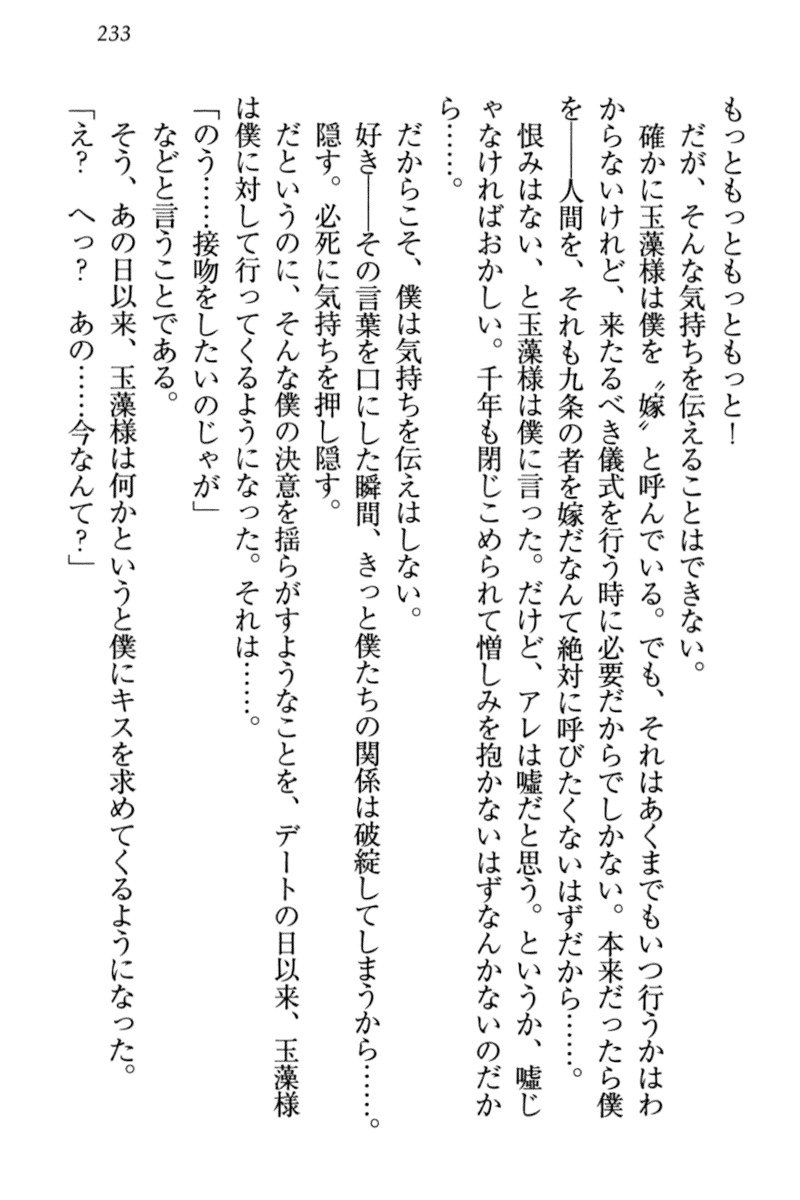 233
もっともっともっともっと！
だが、そんな気持ちを伝えることはできない。
確かに玉藻様は僕を〝嫁〟と呼んでいる。でも、それはあくまでもいつ行うかはわ
からないけれど、来たるべき儀式を行う時に必要だからでしかない。本来だったら僕
を――人間を、それも九条の者を嫁だなんて絶対に呼びたくないはずだから……。
恨みはない、と玉藻様は僕に言った。だけど、アレは嘘だと思う。というか、嘘じ
ゃなければおかしい。千年も閉じこめられて憎しみを抱かないはずなんかないのだか
ら……。
だからこそ、僕は気持ちを伝えはしない。
好き――その言葉を口にした瞬間、きっと僕たちの関係は破綻してしまうから……。
隠す。必死に気持ちを押し隠す。
だというのに、そんな僕の決意を揺らがすようなことを、デートの日以来、玉藻様
は僕に対して行ってくるようになった。それは……。
「のう……接吻をしたいのじゃが」
などと言うことである。
そう、あの日以来、玉藻様は何かというと僕にキスを求めてくるようになった。
「え？　へっ？　あの……今なんて？」